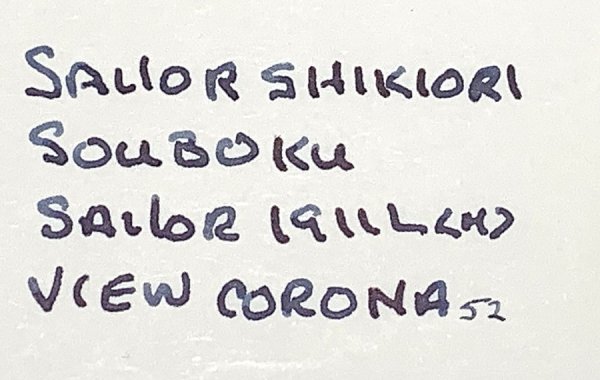 SAILOR SHIKIORI
SOUBOKU
SAILOR 1911L <M>
VIEW CORONA 52